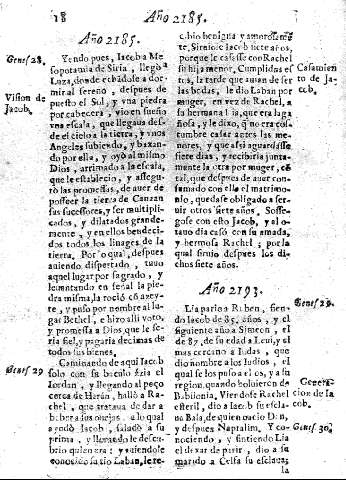 18
Año 2185.
Año 2185.
Genes. 28.
Vision de
Jacob.
Yendo pues, Iacob a Me-
sopotamia de Siria, llegò a
Luza, donde echãdose a dor-
mir al sereno, despues de
puesto el Sol, y vna piedra
por cabecera, vio en sueño
vna escala, que llegava des-
de el cielo a la tierra, y vnos
Angeles subiendo, y baxan-
do por ella, y oyò al mismo
Dios, arrimado a la escala,
que le establecio, y assegu-
rò las promessas, de auer de
posseer la tierra de Canaan
sus sucessores, y ser multipli-
cados, y dilatados grande-
mente, y en ellos bendeci-
dos todos los linages de la
tierra. Por lo qual, despues
auiendo despertado, tuuo
aquel lugar por sagrado, y
leuantando en señal la pie-
dra misma, la rociò cõ azey-
te, y puso por nombre al lu-
gar Bethel, e hizo alli voto,
y promessa a Dios, que le se-
ria fiel, y pagaria decimas de
todos sus bienes.
Genes. 29
Caminando de aqui Iacob
solo con su baculo àzia el
Iordan, y llegando al poço
cerca de Haràn, hallò a Ra-
chel, que trataua de dar a
beber a sus ouejas, a lo qual
ayudò Iacob, saludò a su
prima, y llorando le descu-
brio quien era: y auiendole
conocido su tio Laban, le re-
cibio benigna y amorosamẽ-
te. Siruiole Iacob siete años,
porque le casasse con Rachel
su hija menor. Cumplidas es-
tas, la tarde que auian de ser
las bodas, le dio Laban por
muger, en vez de Rachel, a
su hermana Lia, que era laga
ñosa, y le dixo, q̃ no era cos-
tumbre casar antes las me-
nores, y que assi aguardasse
siete dias, y recibiria junta-
mente la otra por muger, cõ
tal, que despues de auer con-
sumado con ella el matrimo-
nio, quedasse obligado a ser-
uir otros siete años. Sosse-
gose con esto Jacob, y al o-
tauo dia casò con su amada,
y hermosa Rachel; por la
qual siruio despues los di-
chos siete años.
Casamien
to de Ja-
cob.
Año 2193.
Genes. 29.
Lia pario a Ruben, sien-
do Iacob de 85. años, y el
siguiente año a Simeon, el
de 87. de su edad a Leui, y el
mas cercano a Iudas, que
dio nombre a los Iudios, el
qual se les puso a ellos, y a su
region, quando boluieron de
Babilonia. Viendose Rachel
esteril, dio a Iacob su escla-
ua Bala, de quien nacio Dan,
y despues Naptalim. Y co-
nociendo, y sintiendo Lia
el dexar de parir, dio a su
marido a Celfa su esclaua;
la
Genera-
cion de Ia
cob.
Genes. 30.